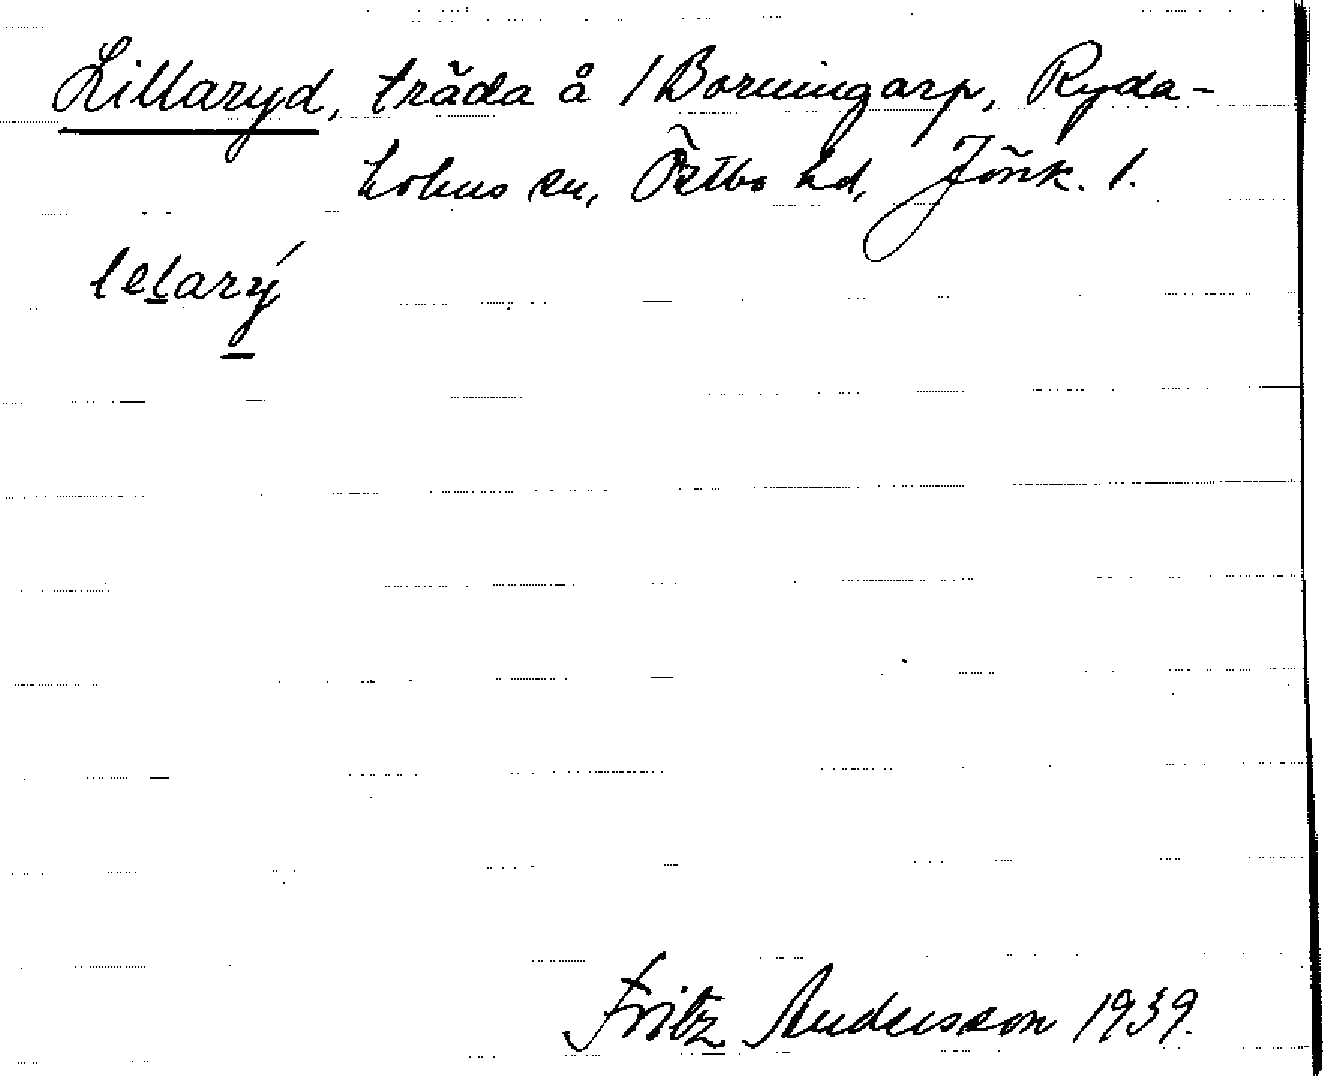 Lillaryd, träda å /Borningarp, Ryda-
holms sn, Östbo hd, Jönk. l.
lelarý
Fritz Andersson 1939.